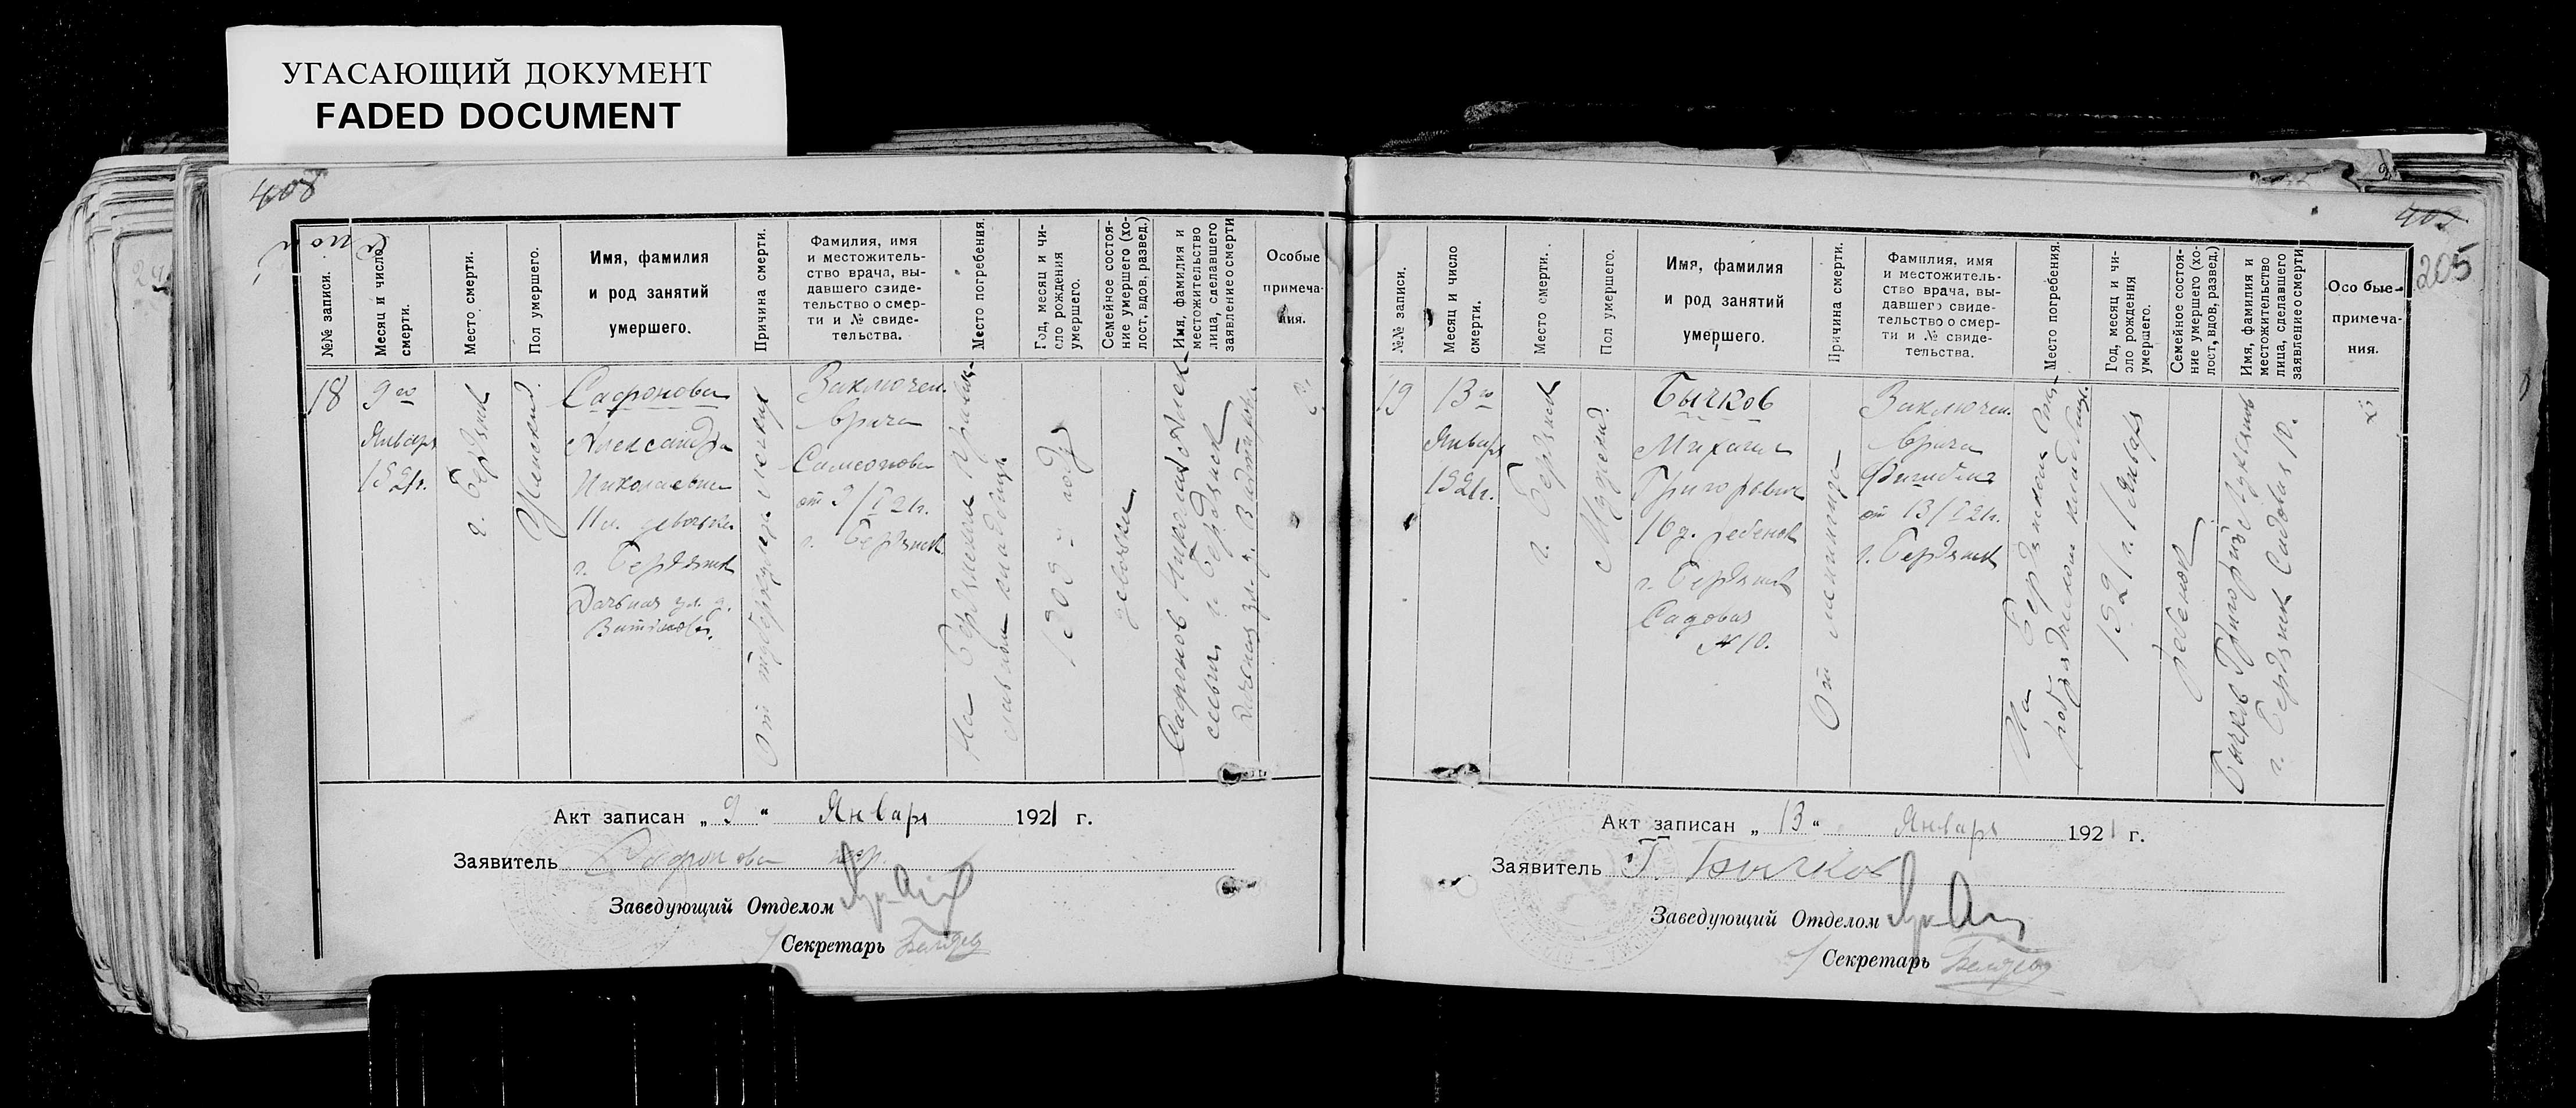 УГАСАЮЩИЙ ДОКУМЕНТ
FADED DOCUMENT
408
№№ записи.
Месяц и число
смерти.
Место смерти.
Пол умершего.
Имя, фамилия
и род занятий
умершего.
Причина смерти.
Фамилия, имя
и местожитель-
ство врача, вы-
давшего свиде-
тельство о смер-
ти и № свиде-
тельства.
Место погребения.
Год, месяц и чи-
сло рождения
умершего.
Семейное состоя-
ние умершего (хо-
лост, вдов, развед.)
Имя, фамилия и
местожительство
лица, сделавшего
заявление о смерти
Особые
примеча-
ния.
18
9го
Января
1921г.
г. Бердянск
Женский.
Сафронова
Александра
Николаевна
11 л. девочка
г. Бердянск
Дачная ул. д.
От туберкулеза легких
Заключен.
врача
Самсонова
от 9/I 21г.
г. Бердянск
На Бердянском
кладбище
1909 году
девочка
Сафронов Николай Алек-
сеевич г. Бердянск
Дачная ул. д.
Акт записан „ 9 “ Января 1921 г.
Заявитель Сафронова
Заведующий Отделом
Секретарь
205
№№ записи.
Месяц и число
смерти.
Место смерти.
Пол умершего.
Имя, фамилия
и род занятий
умершего.
Причина смерти.
Фамилия, имя
и местожитель-
ство врача, вы-
давшего свиде-
тельство о смер-
ти и № свиде-
тельства.
Место погребения.
Год, месяц и чи-
сло рождения
умершего.
Семейное состоя-
ние умершего (хо-
лост, вдов, развед.)
Имя, фамилия и
местожительство
лица, сделавшего
заявление о смерти
Осо бые-
примеча-
ния.
19
13го
Января
1921г.
г. Бердянск
Мужской.
Бычков
Михаил
Григорьевич
10 д. ребенок
г. Бердянск
Садовая
№ 10.
От менингита
Заключен.
врача
от 13/I 21г.
г. Бердянск
На Бердянском
кладбище.
1921 г. 1 Января
ребенок
Бычков Григорий
г. Бердянск Садовая 10.
Акт записан „ 13 “ Января 1921 г.
Заявитель Г. Бычков
Заведующий Отделом
Секретарь